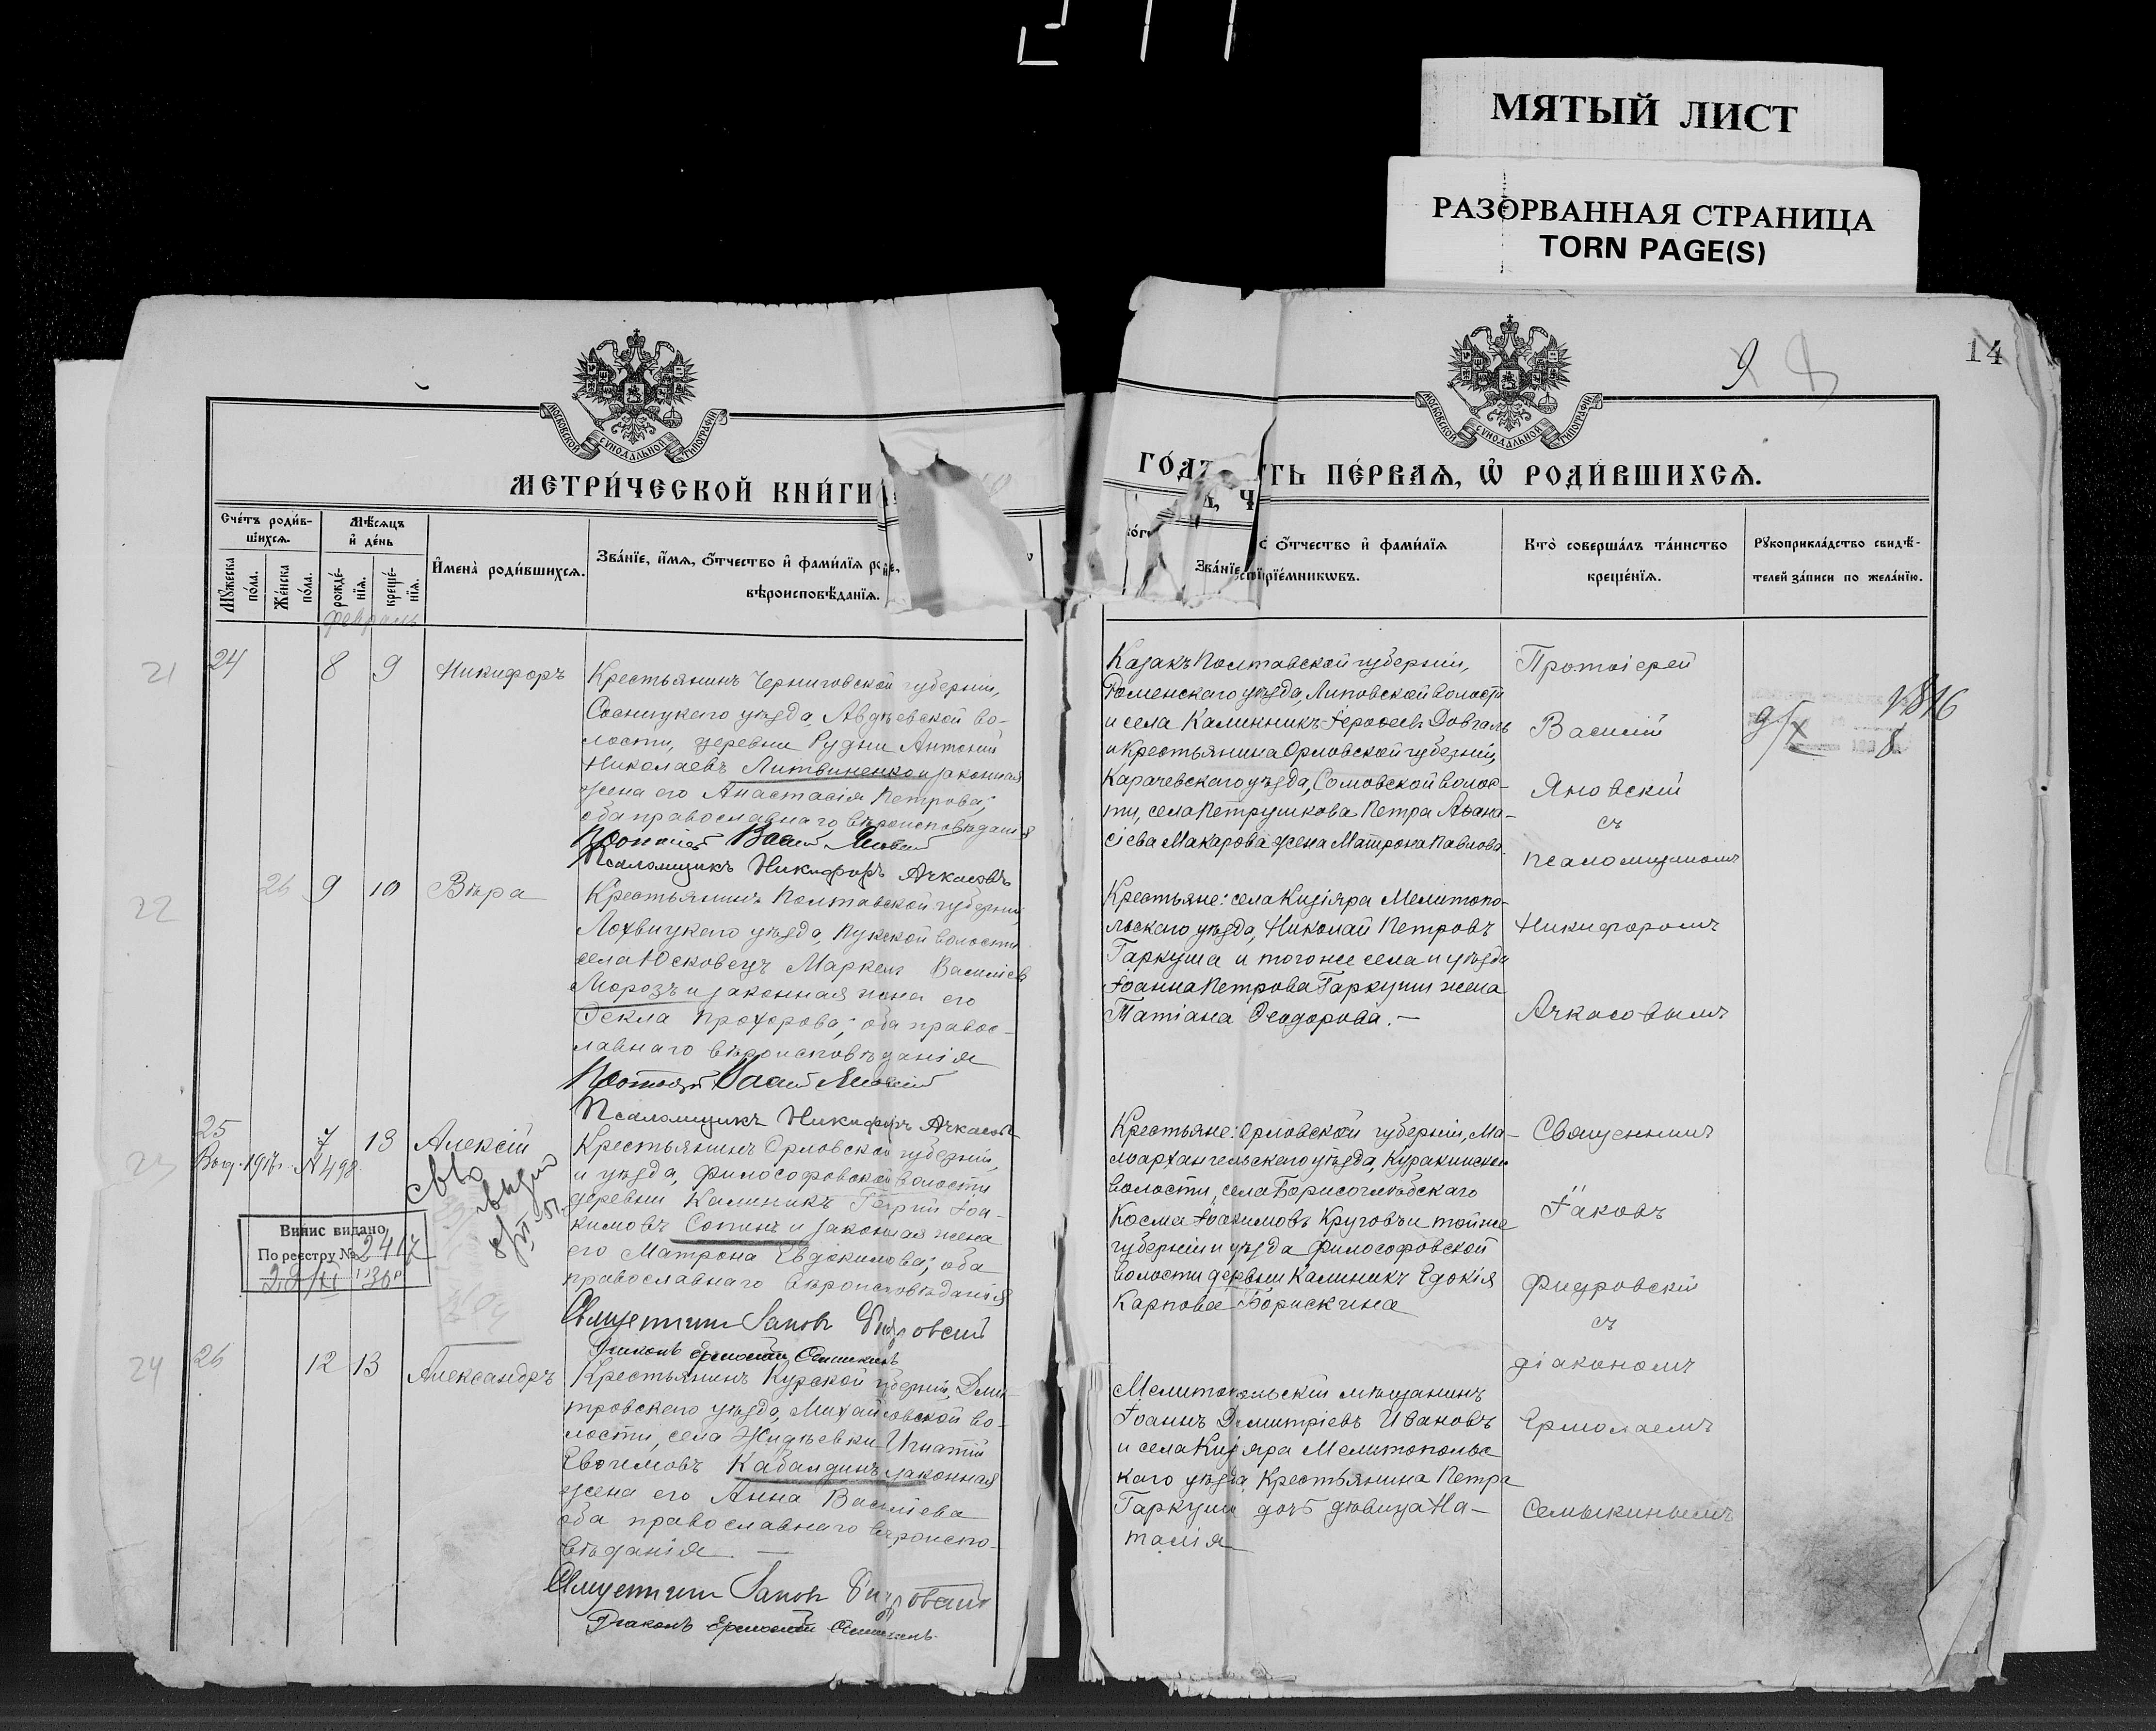 МЯТЫЙ ЛИСТ
РАЗОРВАННАЯ СТРАНИЦА
TORN PAGE(S)
14
9
МОСКОВСКОЙ СѴНОДАЛЬНОЙ ТИПОГРАФІИ
МОСКОВСКОЙ СѴНОДАЛЬНОЙ ТИПОГРАФІИ
МЕТРИ́ЧЕСКОЙ КНИ́ГИ
ГО́ДЪ ТЬ ПЕ́РВАЯ, Ѡ҆ РОДИ́ВШИХСЯ.
Сче́тъ роди́в-
шихся.
Мѣ́сяцъ
и҆ де́нь
Мꙋ́жеска
по́ла.
Же́нска
по́ла.
рожде́-
нїя.
креще́-
нїя.
И҆мена̀ роди́вшихся.
Зва́нїе, и҆́мя, ѻ҆́тчество и҆ фами́лїя
вѣроисповѣ́данїя.
Зва́нїе
ѻ҆́тчество и҆ фами́лїя
прїе́мникωвъ.
Кто̀ соверша́лъ та́инство
креще́нїя.
Рꙋкоприкла́дство свидѣ́-
телей за́писи по жела́нїю.
Февраль
21
24
8
9
Никифоръ
Крестьянинъ Черниговской губерніи,
Сосницкаго уѣзда, Авдѣевской во-
лости, деревни Рудни Антоній
Николаевъ Литвиненко и законная
жена его Анастасія Петрова;
оба православнаго вѣроисповѣданія
Псаломщикъ Никифоръ Ачкасовъ
Казакъ Полтавской губерніи,
Роменскаго уѣзда, Липовской волости
и села Калинникъ Іерофей Довгаль
и Крестьянина Орловской губерніи,
Карачевскаго уѣзда, Сомовской волос-
ти, села Петрушкова Петра Аѳана-
сіева Макарова жена Матрона Павлова.
Протоіерей
Василій
Яновскій
съ
псаломщикомъ
Никифоромъ
Ачкасовымъ
9/X
22
26
9
10
Вѣра
Крестьянинъ Полтавской губерніи
Лохвицкаго уѣзда, волости
села Юсковецъ Маркелъ Василіевъ
Морозъ и законная жена его
Ѳекла Прохорова; оба правос-
лавнаго вѣроисповѣданія
Псаломщикъ Никифоръ Ачкасовъ
Крестьяне: села Кизіяра Мелитопо-
льскаго уѣзда, Николай Петровъ
Гаркуша и того же села и уѣзда
Іоанна Петрова Гаркуши жена
Татіана Ѳеодорова. —
25
7
13
Алексій
1917 г. № 498
Крестьянинъ Орловской губерніи,
и уѣзда, Философовской волости
деревни Калиникъ Георгій Іоа-
кимовъ Сопинъ и законная жена
его Матрона Евдокимова; оба
православнаго вѣроисповѣданія
Священникъ Іаковъ
Діаконъ Ермолай
Випис видано,
По реєстру № 2417
Крестьяне: Орловской губерніи, Ма-
лоархангельскаго уѣзда, Куракинской
волости, села Борисоглѣбскаго
Косма Іоакимовъ Круговъ и той же
губерніи и уѣзда Философовской
волости деревни Калиникъ Едокія
Карповая Борискина
Священникъ
Іаковъ
съ
діакономъ
Ермолаемъ
Семыкинымъ
24
26
12
13
Александръ
Крестьянинъ Курской губерніи, Дми-
тровскаго уѣзда, Михайловской во-
лости, села Жидѣевки Игнатій
Евѳимовъ Кабалдинъ законная
жена его Анна Василіева
оба православнаго вѣроиспо-
вѣданія —
Священникъ Іаковъ
Діаконъ Ермолай
Мелитопольскій мѣщанинъ
Іоаннъ Димитріевъ Ивановъ
и села Кизіяра Мелитопольс
каго уѣзда, Крестьянина Петра
Гаркуши дочь дѣвица На-
талія